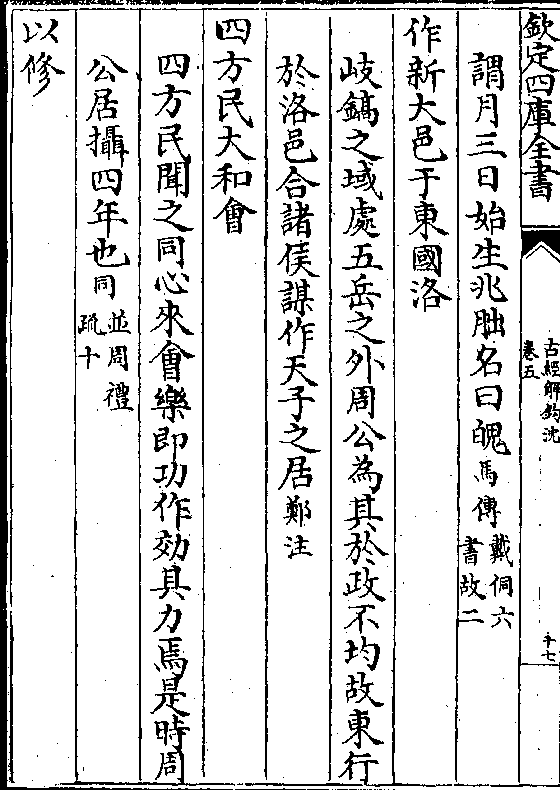 欽定四庫全書
古經解鈎沈
卷五
十七
謂月三日始生兆朏名曰魄馬傳戴侗六
書故二
作新大邑于東國洛
岐鎬之域處五岳之外周公為其於政不均故東行
於洛邑合諸侯謀作天子之居鄭注
四方民大和會
四方民聞之同心來會樂即功作効其力焉是時周
公居攝四年也同並周禮
疏十
以修